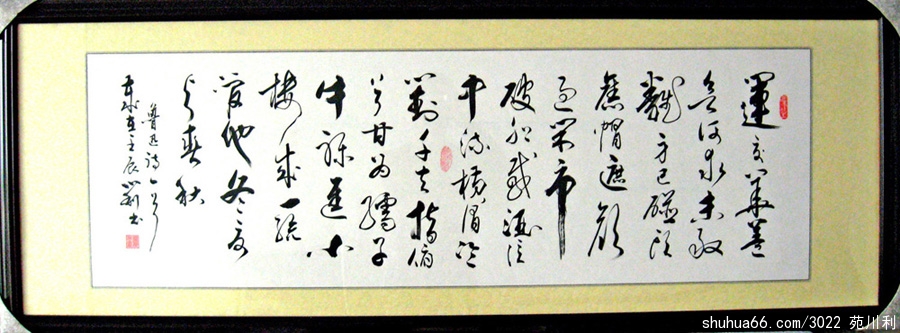 運交華蓋
欲何求未敢
翻身已碰頭
舊帽遮顏
過鬧市
破船載酒泛
中流橫眉冷
對千夫指俯
首甘為孺子
牛躲進小
樓成一統
管他冬夏
与春秋
魯迅詩一首
在壬辰 書
shuhua66.com/3022 苑川利